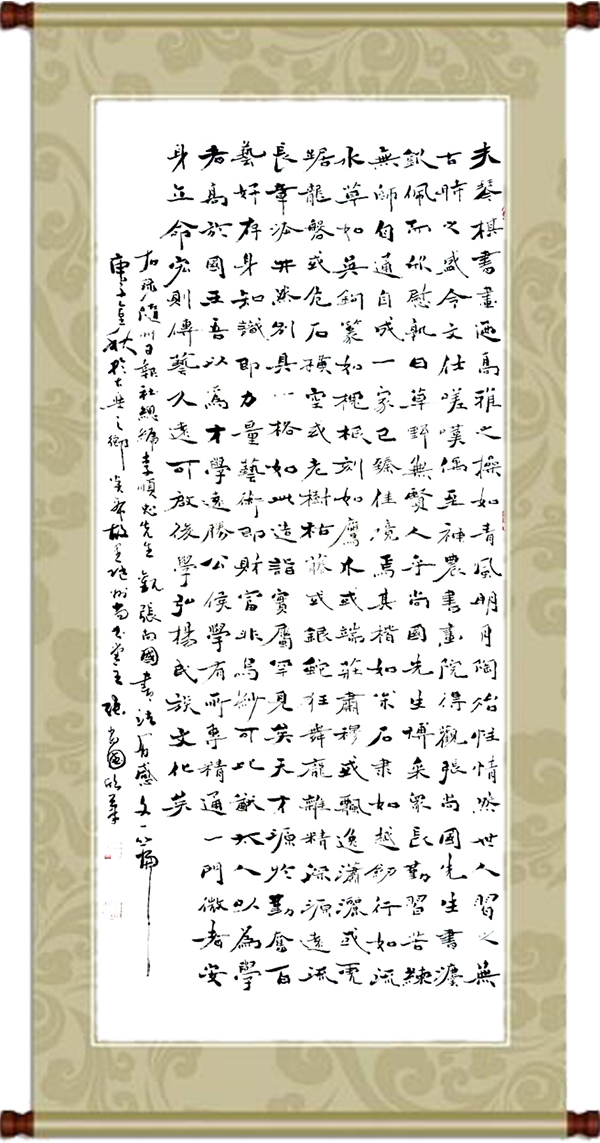 夫琴棋書畫迺高雅之操如青風明月陶冶性情然世人習之無
古時之盛今文仕嗟嘆偶至神農書畫院得觀張尚國先生書灋
欽佩而欣慰孰曰草野無賢人乎尚國先生博采眾長勤習苦練
無師自通自成一家已臻佳境焉其楷如宋石隶如越劍行如流
水草如吳鈎篆如槐根刻如鷹木或端莊肅穆或飄逸瀟灑或虎
踞龍磐或危石橫空或老樹枯藤或銀蛇狂舞龐雜精深源遠流
長章派井然別具一格如此造詣實屬罕見矣天才源於勤奮百
藝好存身知識即力量藝術即財富非烏紗可比猷太人以為學
者高於國王吾以為才學遠勝公侯學有所專精通一門微者安
身立命宏則傳藝久遠可啟後學弘楊民族文化矣
右录隨州日報社總編李順忠先生觀張尚國書法有感文一篇
庚子金秋於之鄉炎帝故里隨州尚堂主張尚國